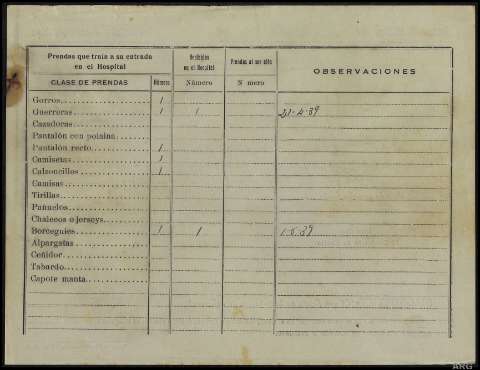 Prendas que traía a su entrada en el Hospital
Recibidas en el Hospital
Prendas al ser alta
OBSERVACIONES
CLASE DE PRENDAS
Número
Número
N mero
Gorros 1
Guerreras 1 1 21-4-39
Cazadoras
Pantalón con polaina
Pantalón recto 1
Camisetas 1
Calzoncillos 1
Camisas
Tirillas
Pañuelos
Chalecos o jerseys
Borceguíes 1 1 1-5-39
Alpargatas
Ceñidor
Tabardo
Capote manta
ARG